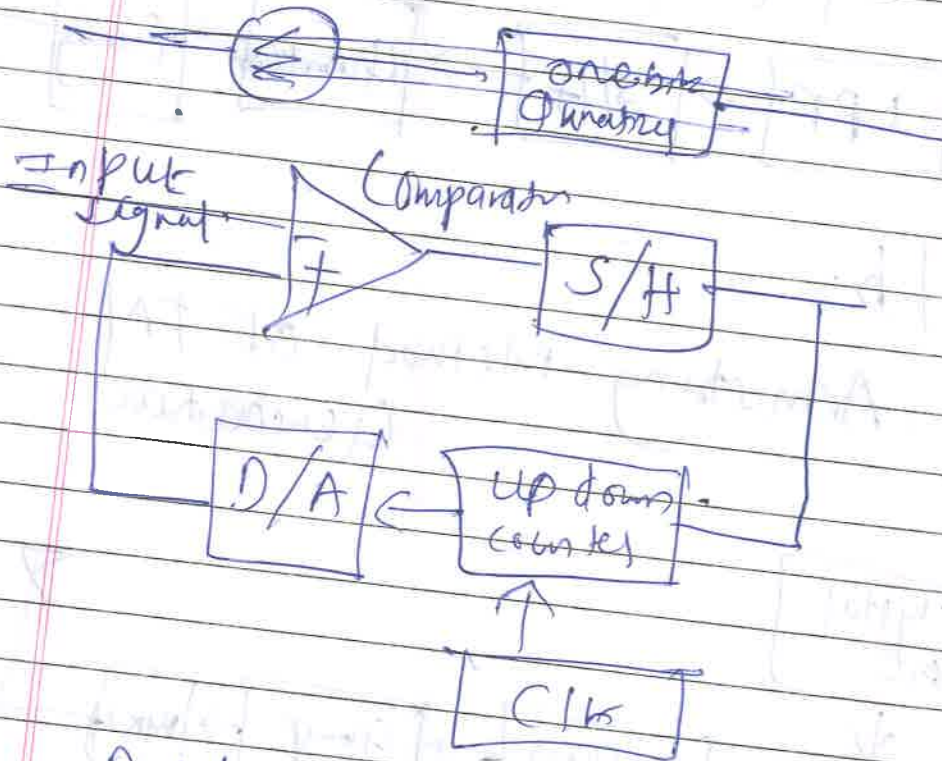 Σ
onebit
Input
Signal
Comparator
+
S/H
D/A
up down
counter
Clk